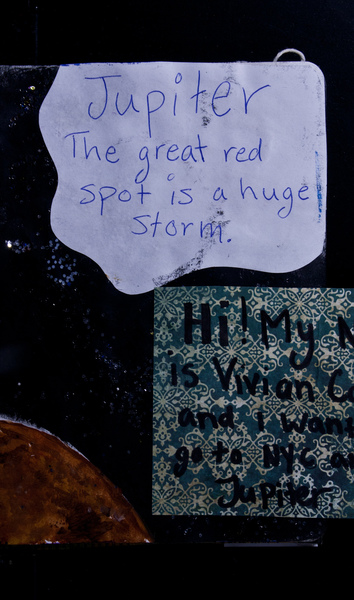 Jupiter
The great red
spot is a huge
storm.
Hi! My
is Vivian
and i want
go to NYC
Jupiter